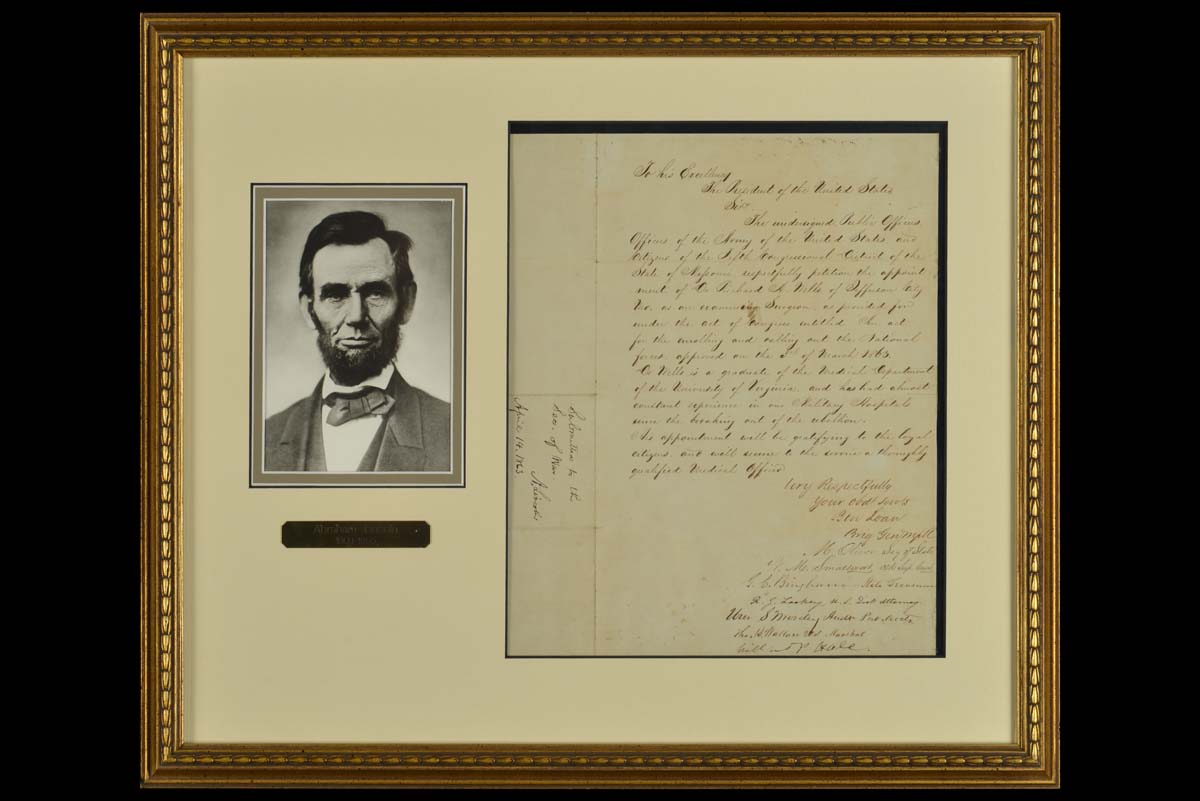 Abraham Lincoln
1809-1865
Submitted to the
Sec. of War
A. Lincoln
April 14, 1863
To his Excellency
The President of the United States
Sir
The undersigned, Public Officers,
Officers of the Army of the United States, and
Citizens of the Fifth Congressional District of the
State of Missouri, respectfully petition the appoint
ment of Dr Richard H. Wells of Jefferson City
Mo. as an examining Surgeon, as provided for
under the act of Congress entitled "An act
for the enrolling and calling out the National
forces" approved on the 3rd of March 1863.
Dr Wells is a graduate of the Medical Department
of the University of Virginia, and has had almost
constant experience in our Military Hospitals
since the breaking out of the rebellion.
His appointment will be gratifying to the loyal
citizens, and will secure to the service a thoroughly
qualified Medical Officer.
Very Respectfully
Your Obdt Servts
Ben Loan
Brig Gen
M. Oliver Secy of State
G. C. Bingham State Treasurer
U.S. Dist Attorney
Wm S Moseley
Marshal
Hall